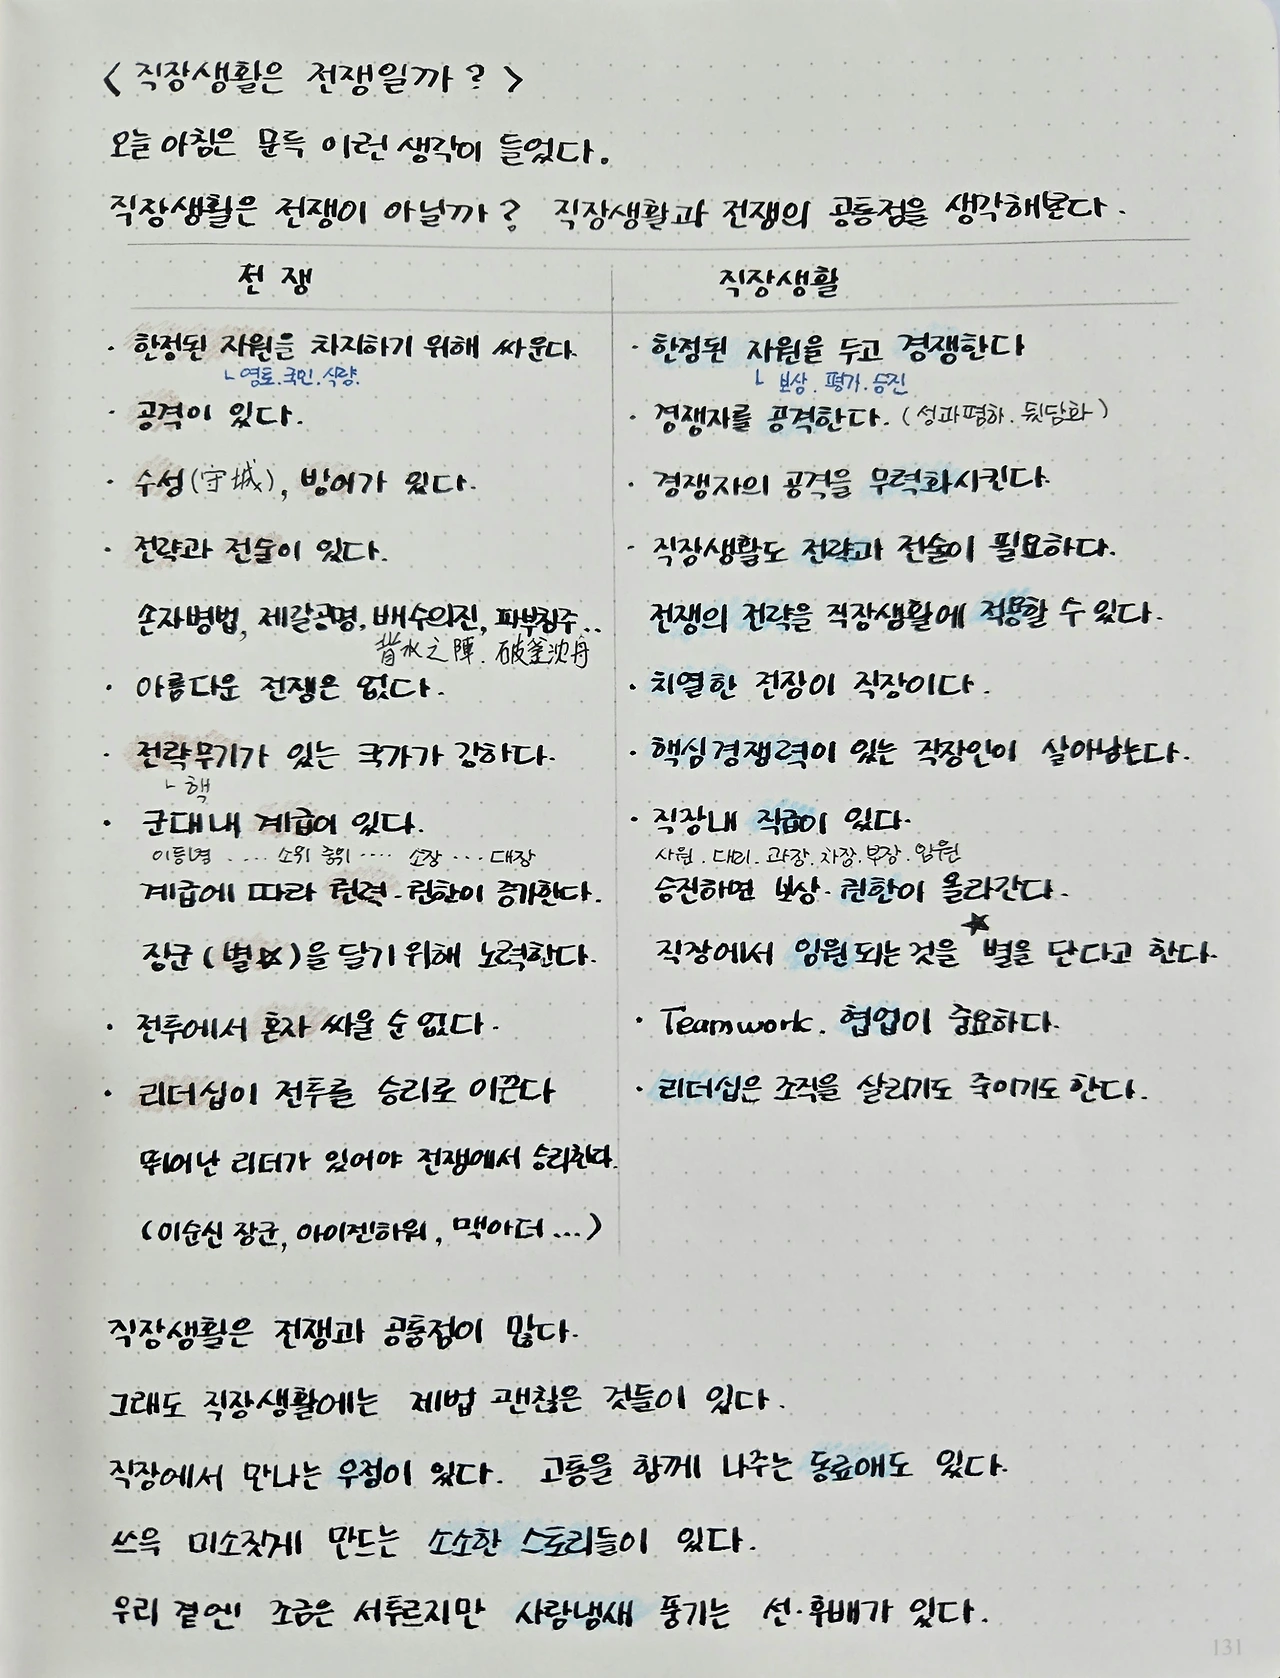 < 직장생활은 전쟁일까? >
오늘 아침은 문득 이런 생각이 들었다.
직장생활은 전쟁이 아닐까? 직장생활과 전쟁의 공통점을 생각해본다.
전쟁
· 한정된 자원을 차지하기 위해 싸운다.
ㄴ영토. 국민. 식량.
· 공격이 있다.
· 수성(守城), 방어가 있다.
· 전략과 전술이 있다.
손자병법, 제갈공명, 배수의진, 파부침주..
背水之陣. 破釜沈舟
· 아름다운 전쟁은 없다.
· 전략무기가 있는 국가가 강하다.
ㄴ핵
· 군대내 계급이 있다.
이등병 .... 소위 중위 .... 소장 ... 대장
계급에 따라 권력·권한이 증가한다.
장군(별☆)을 달기 위해 노력한다.
· 전투에서 혼자 싸울 순 없다.
· 리더십이 전투를 승리로 이끈다
뛰어난 리더가 있어야 전쟁에서 승리한다.
(이순신 장군, 아이젠하워, 맥아더...)
직장생활
· 한정된 자원을 두고 경쟁한다
ㄴ 보상. 평가. 승진
· 경쟁자를 공격한다. (성과폄하. 뒷담화)
· 경쟁자의 공격을 무력화시킨다.
- 직장생활도 전략과 전술이 필요하다.
전쟁의 전략을 직장생활에 적용할 수 있다.
· 치열한 전장이 직장이다.
· 핵심경쟁력이 있는 직장인이 살아남는다.
· 직장내 직급이 있다.
사원. 대리. 과장. 차장. 부장. 임원
승진하면 보상·권한이 올라간다.
직장에서 임원되는 것을 ★별을 단다고 한다.
· Teamwork. 협업이 중요하다.
· 리더십은 조직을 살리기도 죽이기도 한다.
직장생활은 전쟁과 공통점이 많다.
그래도 직장생활에는 제법 괜찮은 것들이 있다.
직장에서 만나는 우정이 있다. 고통을 함께 나누는 동료애도 있다.
쓰윽 미소짓게 만드는 소소한 스토리들이 있다.
우리 곁엔! 조금은 서투르지만 사람냄새 풍기는 선·후배가 있다.
131